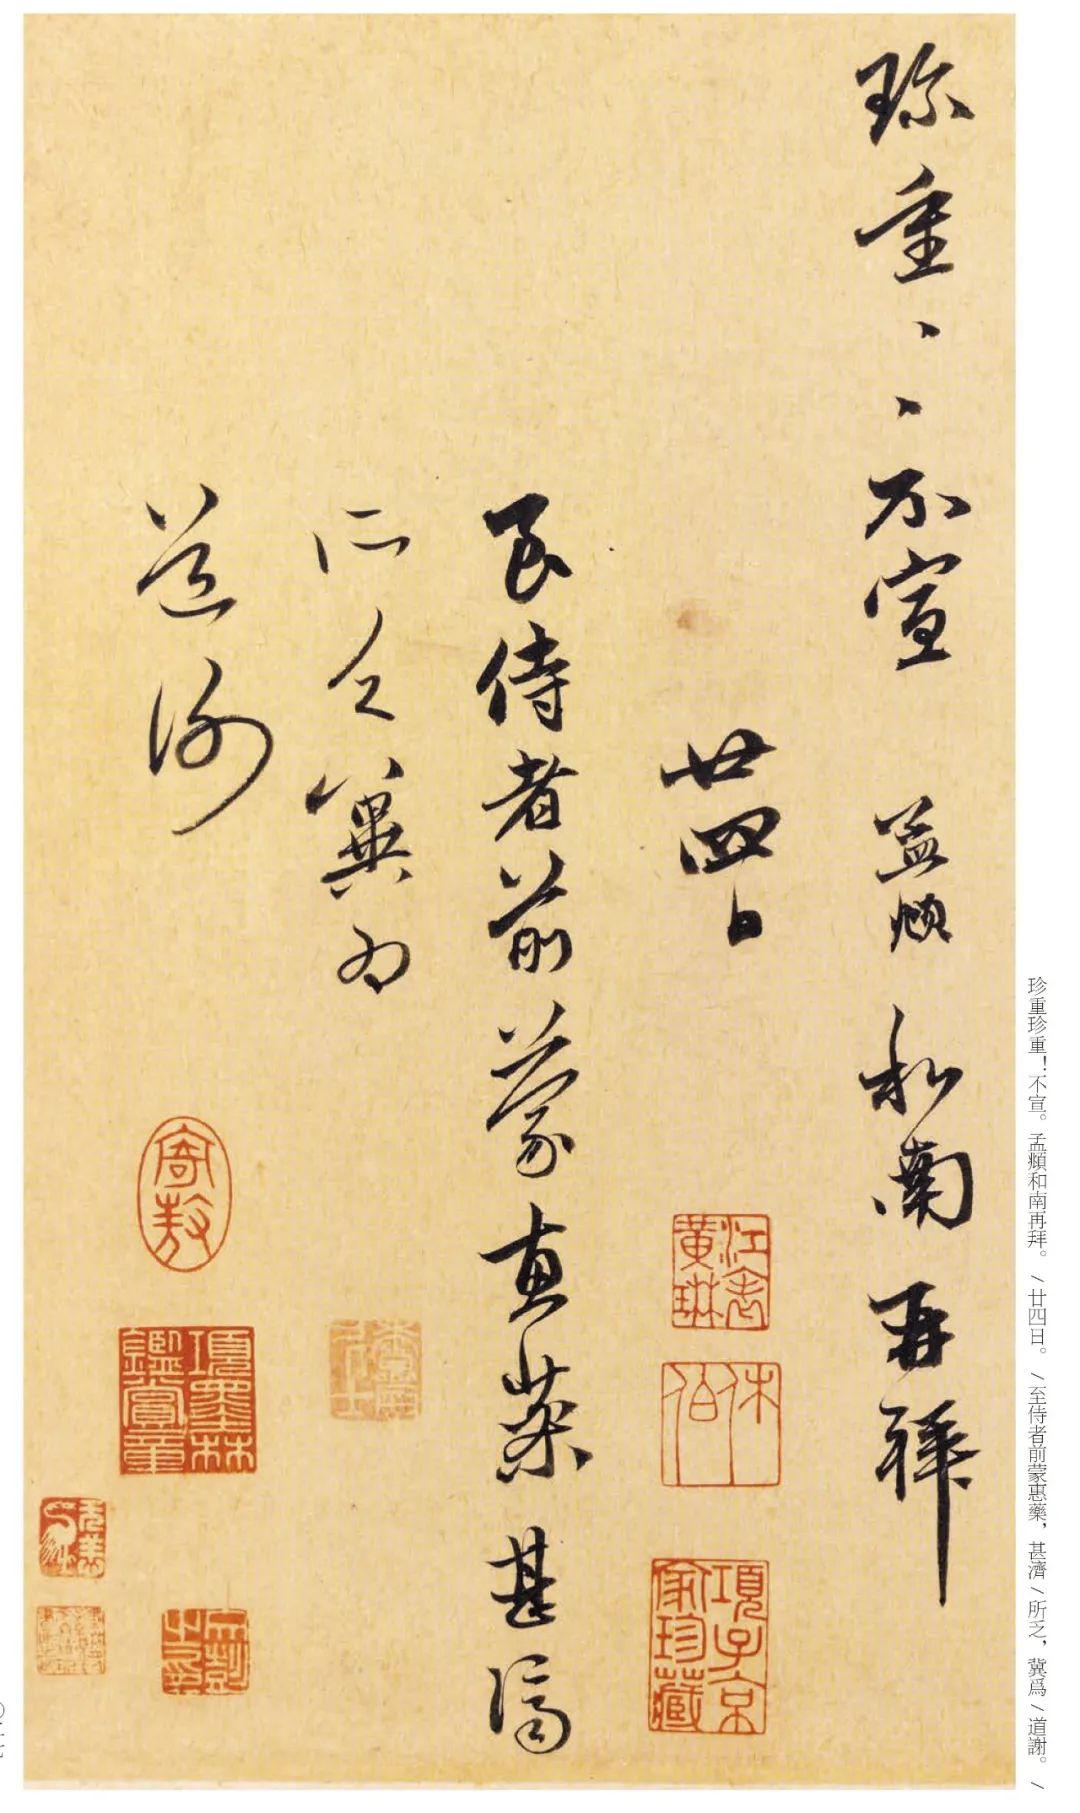 珍重珍重！不宣。孟頫和南再拜。/廿四日。/至侍者前蒙惠藥，甚濟/所乏，冀爲/道謝。/
珍重、、不宣 孟頫和南再拜
廿四日
至侍者前蒙惠藥甚濟
所乏冀爲
道謝
江表黃琳
休伯
項子京家珍藏
寄敖
項墨林鑑賞章